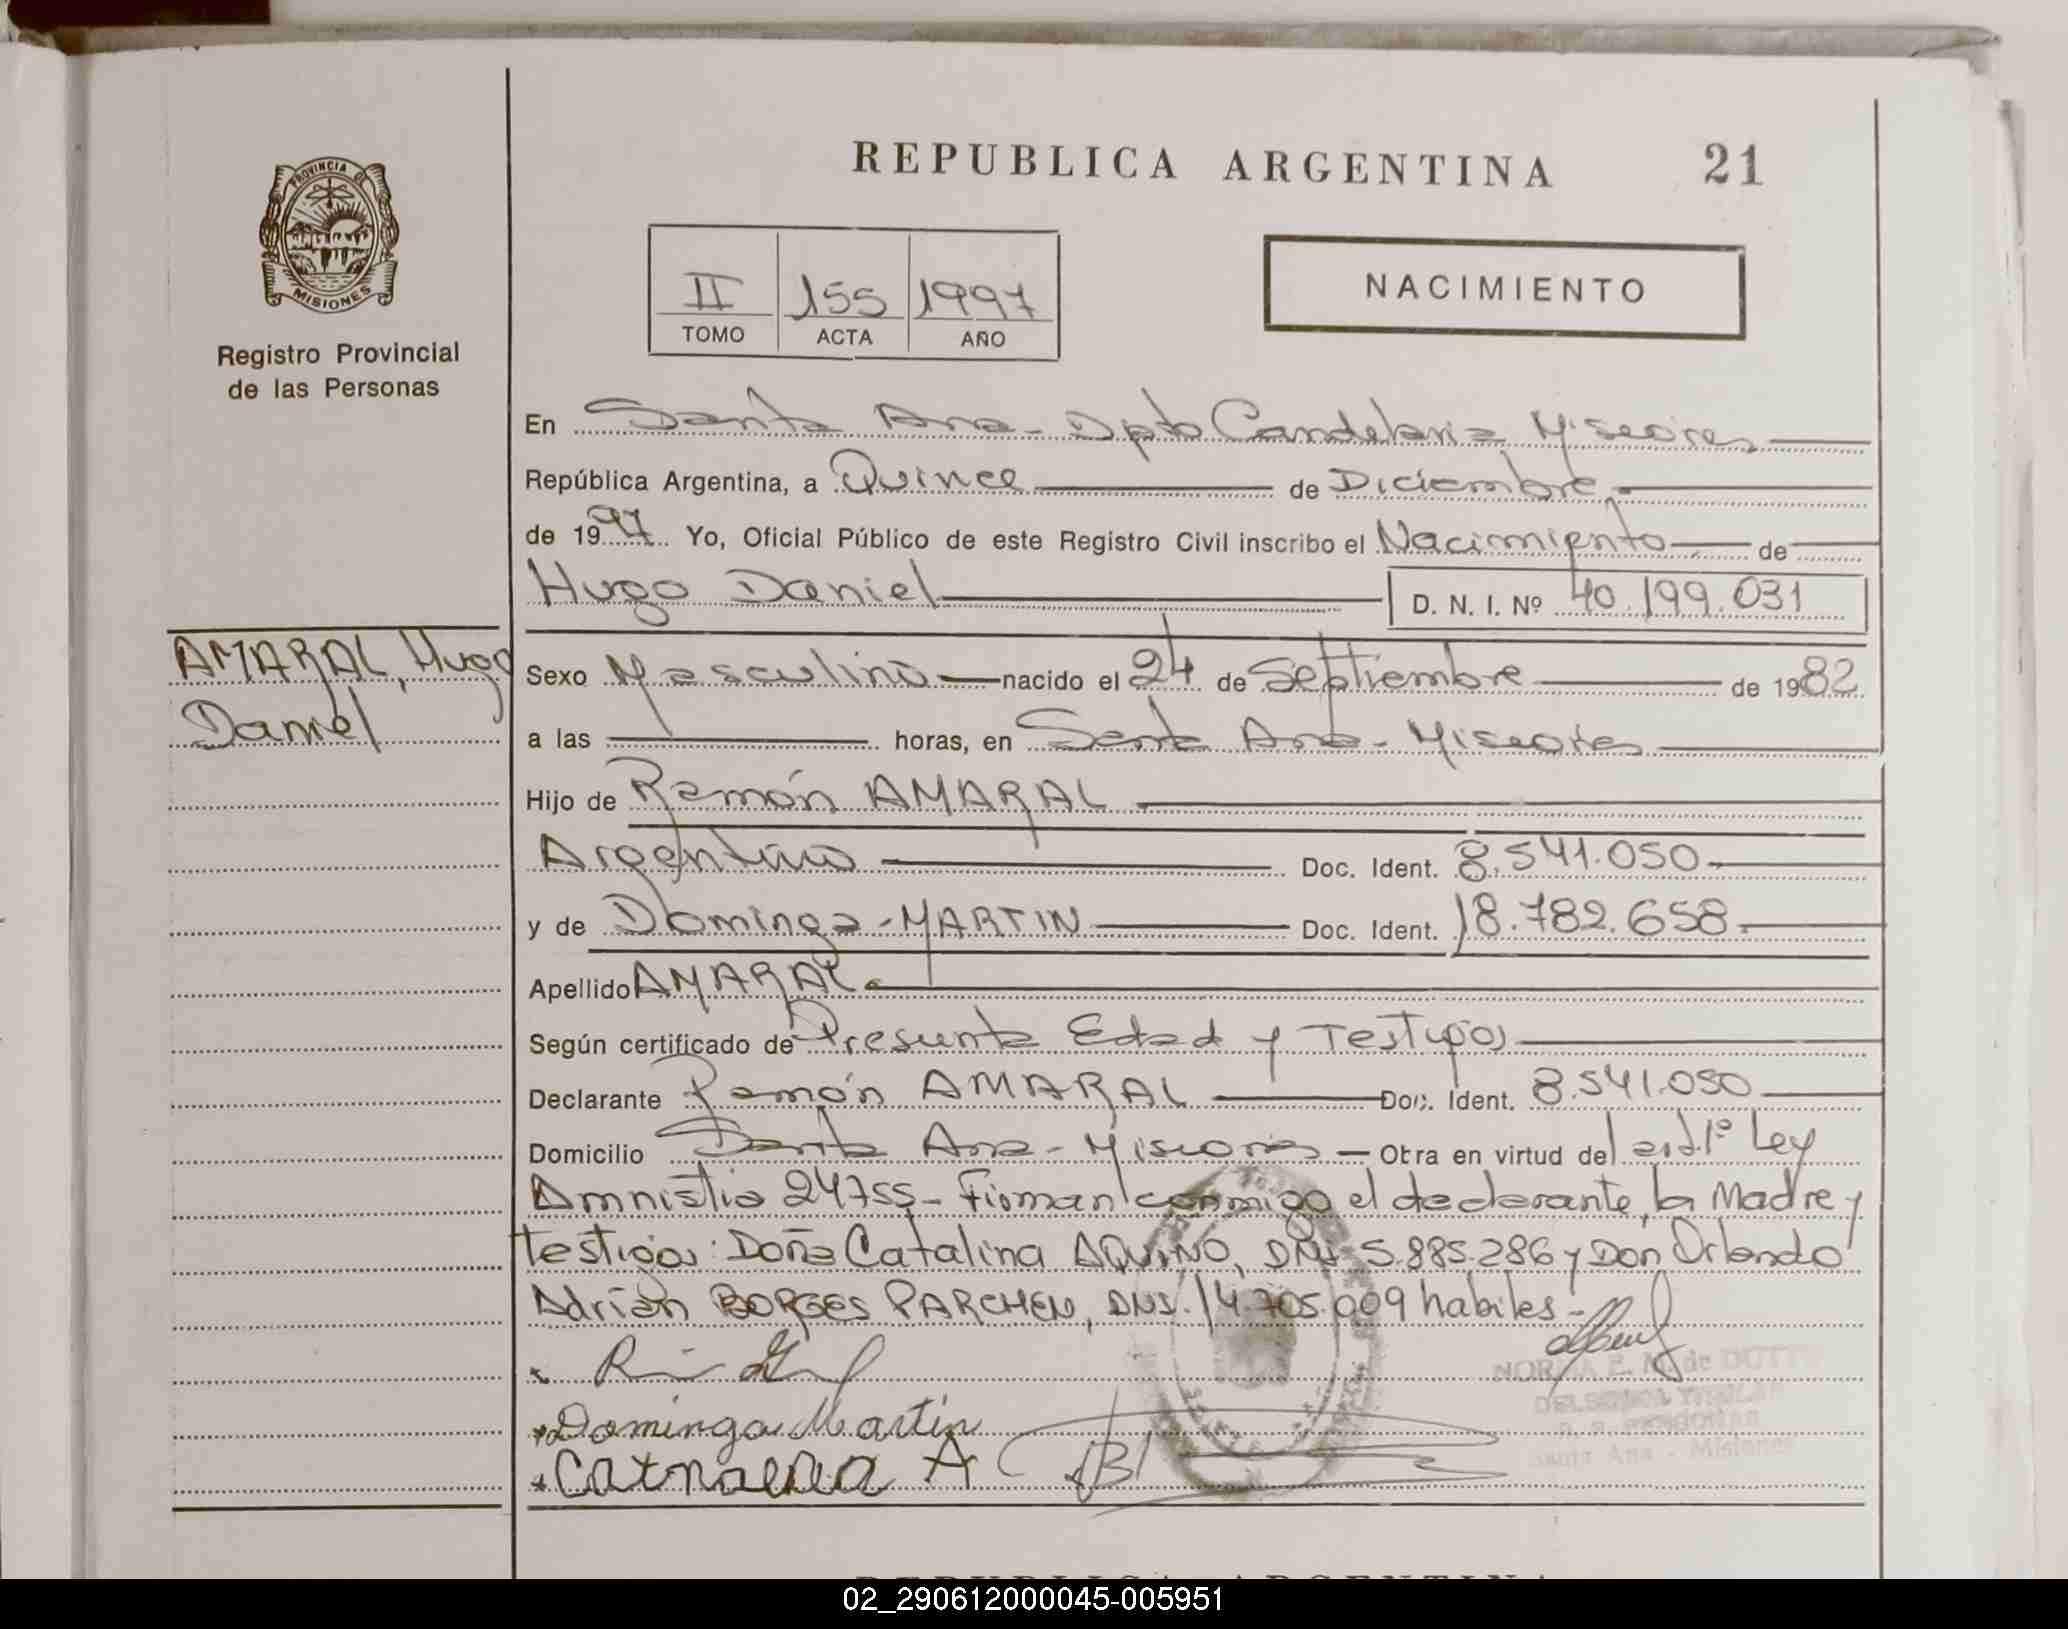 PROVINCIA DE
MISIONES
Registro Provincial
de las Personas
AMARAL, Hugo
Daniel
REPUBLICA ARGENTINA 21
II 155 1997
TOMO ACTA AÑO
NACIMIENTO
En Santa Ana - Dpto Candelaria Misiones
República Argentina, a Quince de Diciembre
de 1997 Yo, Oficial Público de este Registro Civil inscribo el Nacimiento de
Hugo Daniel D. N. I. Nº 40.199.031
Sexo Masculino nacido el 24 de Septiembre de 1982
a las horas, en Santa Ana - Misiones
Hijo de Ramón AMARAL
Argentino Doc. Ident. 8.541.050
y de Dominga - MARTIN Doc. Ident. 18.782.658
Apellido AMARAL
Según certificado de Presunta Edad y Testigos
Declarante Ramón AMARAL Doc. Ident. 8.541.050
Domicilio Santa Ana - Misiones - Otra en virtud del 1º Ley
Amnistia 24755 - Firman conmigo el declarante, la Madre y
testigos: Doña Catalina AQUINO, DNI 5.885.286 y Don Orlando
Adrián BORGES PARCHEN, DNI. 14.705.009 habiles -
Dominga Martin
A
NORMA E. M. de
DELEGADA TITULAR
Santa Ana - Misiones
REPUBLICA ARGENTINA
02_290612000045-005951